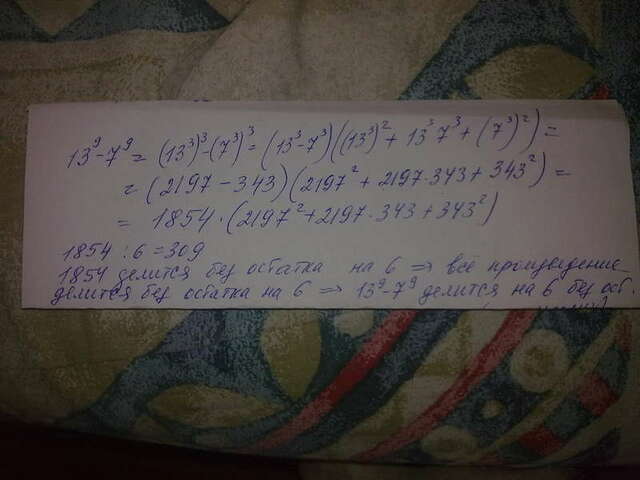 13⁹-7⁹ = (13³)³-(7³)³ = (13³-7³)((13³)²+13³7³+(7³)²) =
= (2197-343)(2197²+2197·343+343²) =
= 1854·(2197²+2197·343+343²)
1854 : 6 = 309
1854 делится без остатка на 6 ⇒ всё произведение
делится без остатка на 6 ⇒ 13⁹-7⁹ делится на 6 без ост.